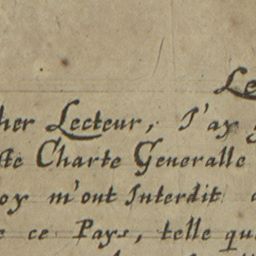 Le
her Lecteur, J'ay
ste Charte Generalle
oy m'ont Interdit
e ce Pays, telle qu